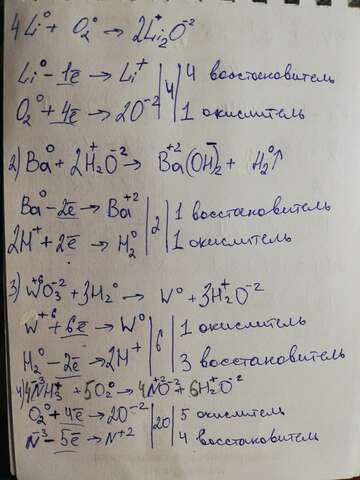 4Li⁰ + O₂⁰ → 2Li₂⁺O⁻²
Li⁰ - 1ē → Li⁺ | 4 | 4 восстановитель
O₂⁰ + 4ē → 2O⁻² | 1 окислитель
2) Ba⁰ + 2H₂⁺O⁻² → Ba⁺²(OH)₂⁻ + H₂⁰↑
Ba⁰ - 2ē → Ba⁺² | 2 | 1 восстановитель
2H⁺ + 2ē → H₂⁰ | 1 окислитель
3) W⁺⁶O₃⁻² + 3H₂⁰ → W⁰ + 3H₂⁺O⁻²
W⁺⁶ + 6ē → W⁰ | 6 | 1 окислитель
H₂⁰ - 2ē → 2H⁺ | 3 восстановитель
4) 4N⁻³H₃⁺ + 5O₂⁰ → 4N⁺²O⁻² + 6H₂⁺O⁻²
O₂⁰ + 4ē → 2O⁻² | 20 | 5 окислитель
N⁻³ - 5ē → N⁺² | 4 восстановитель